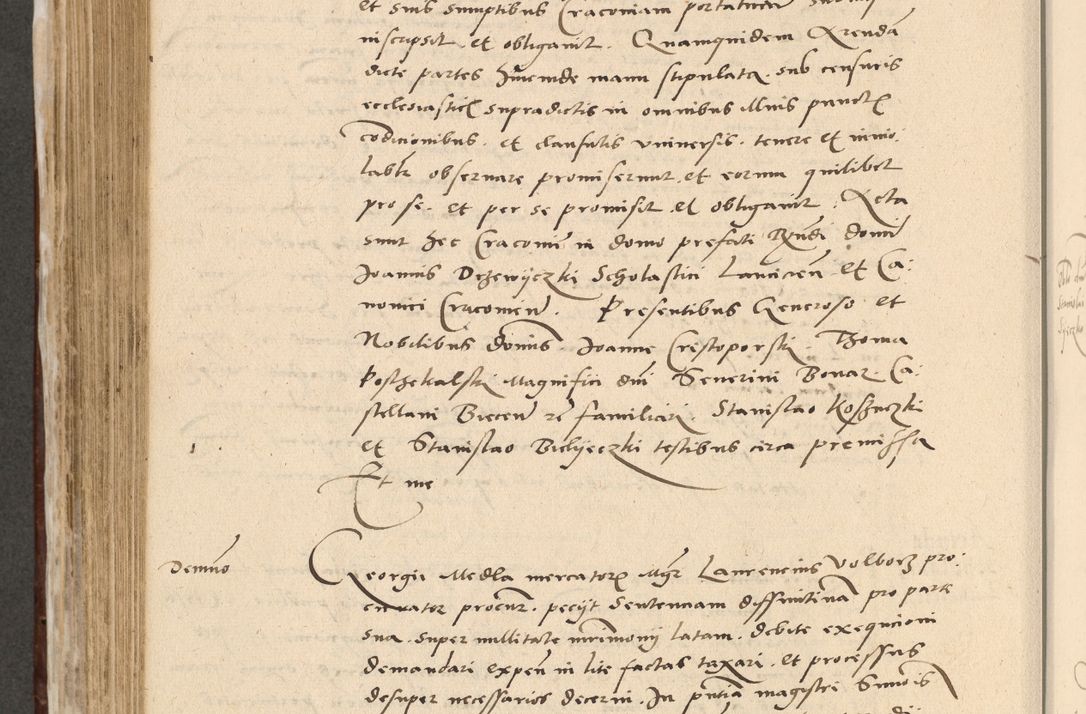 et suis sumptibus Craconiam portaturum
inscripsit et obligauit. Quamquidem Arenda
dicte partes hincinde manu stipulata. sub censuris
ecclesiastic supradictis in omnibus illius punctis
condicionibus. et clausulis vniuersis. tenere et inuio:
labilr obseruare promiserunt. et eorum quilibet
pro se. et per se promisit et obligauit. Acta
sunt hec Cracouie in domo prefati Rndi domi
Joannis Drzewyeczki Scholastici Lancicien et Ca:
nonici Cracouien. Presentibus Generoso et
Nobilibus domis Joanne Crestoporski Thoma
Magnifici dni Seuerini Bonar. Ca:
stellani Biecen familiari Stanislao
et Stanislao Bielyeczki testibus circa premissa
Et me
Georgii Medla mercatoris Mgr Laurencius Volborz pro:
curator procur. pecijt sentenciam diffinitiuam pro parte
sua super nullitate mrimonij latam. debite exequcioni
demandari expen in lite factas taxari. et processus
desuper necessarios decerni. In pntia magistri Simonis